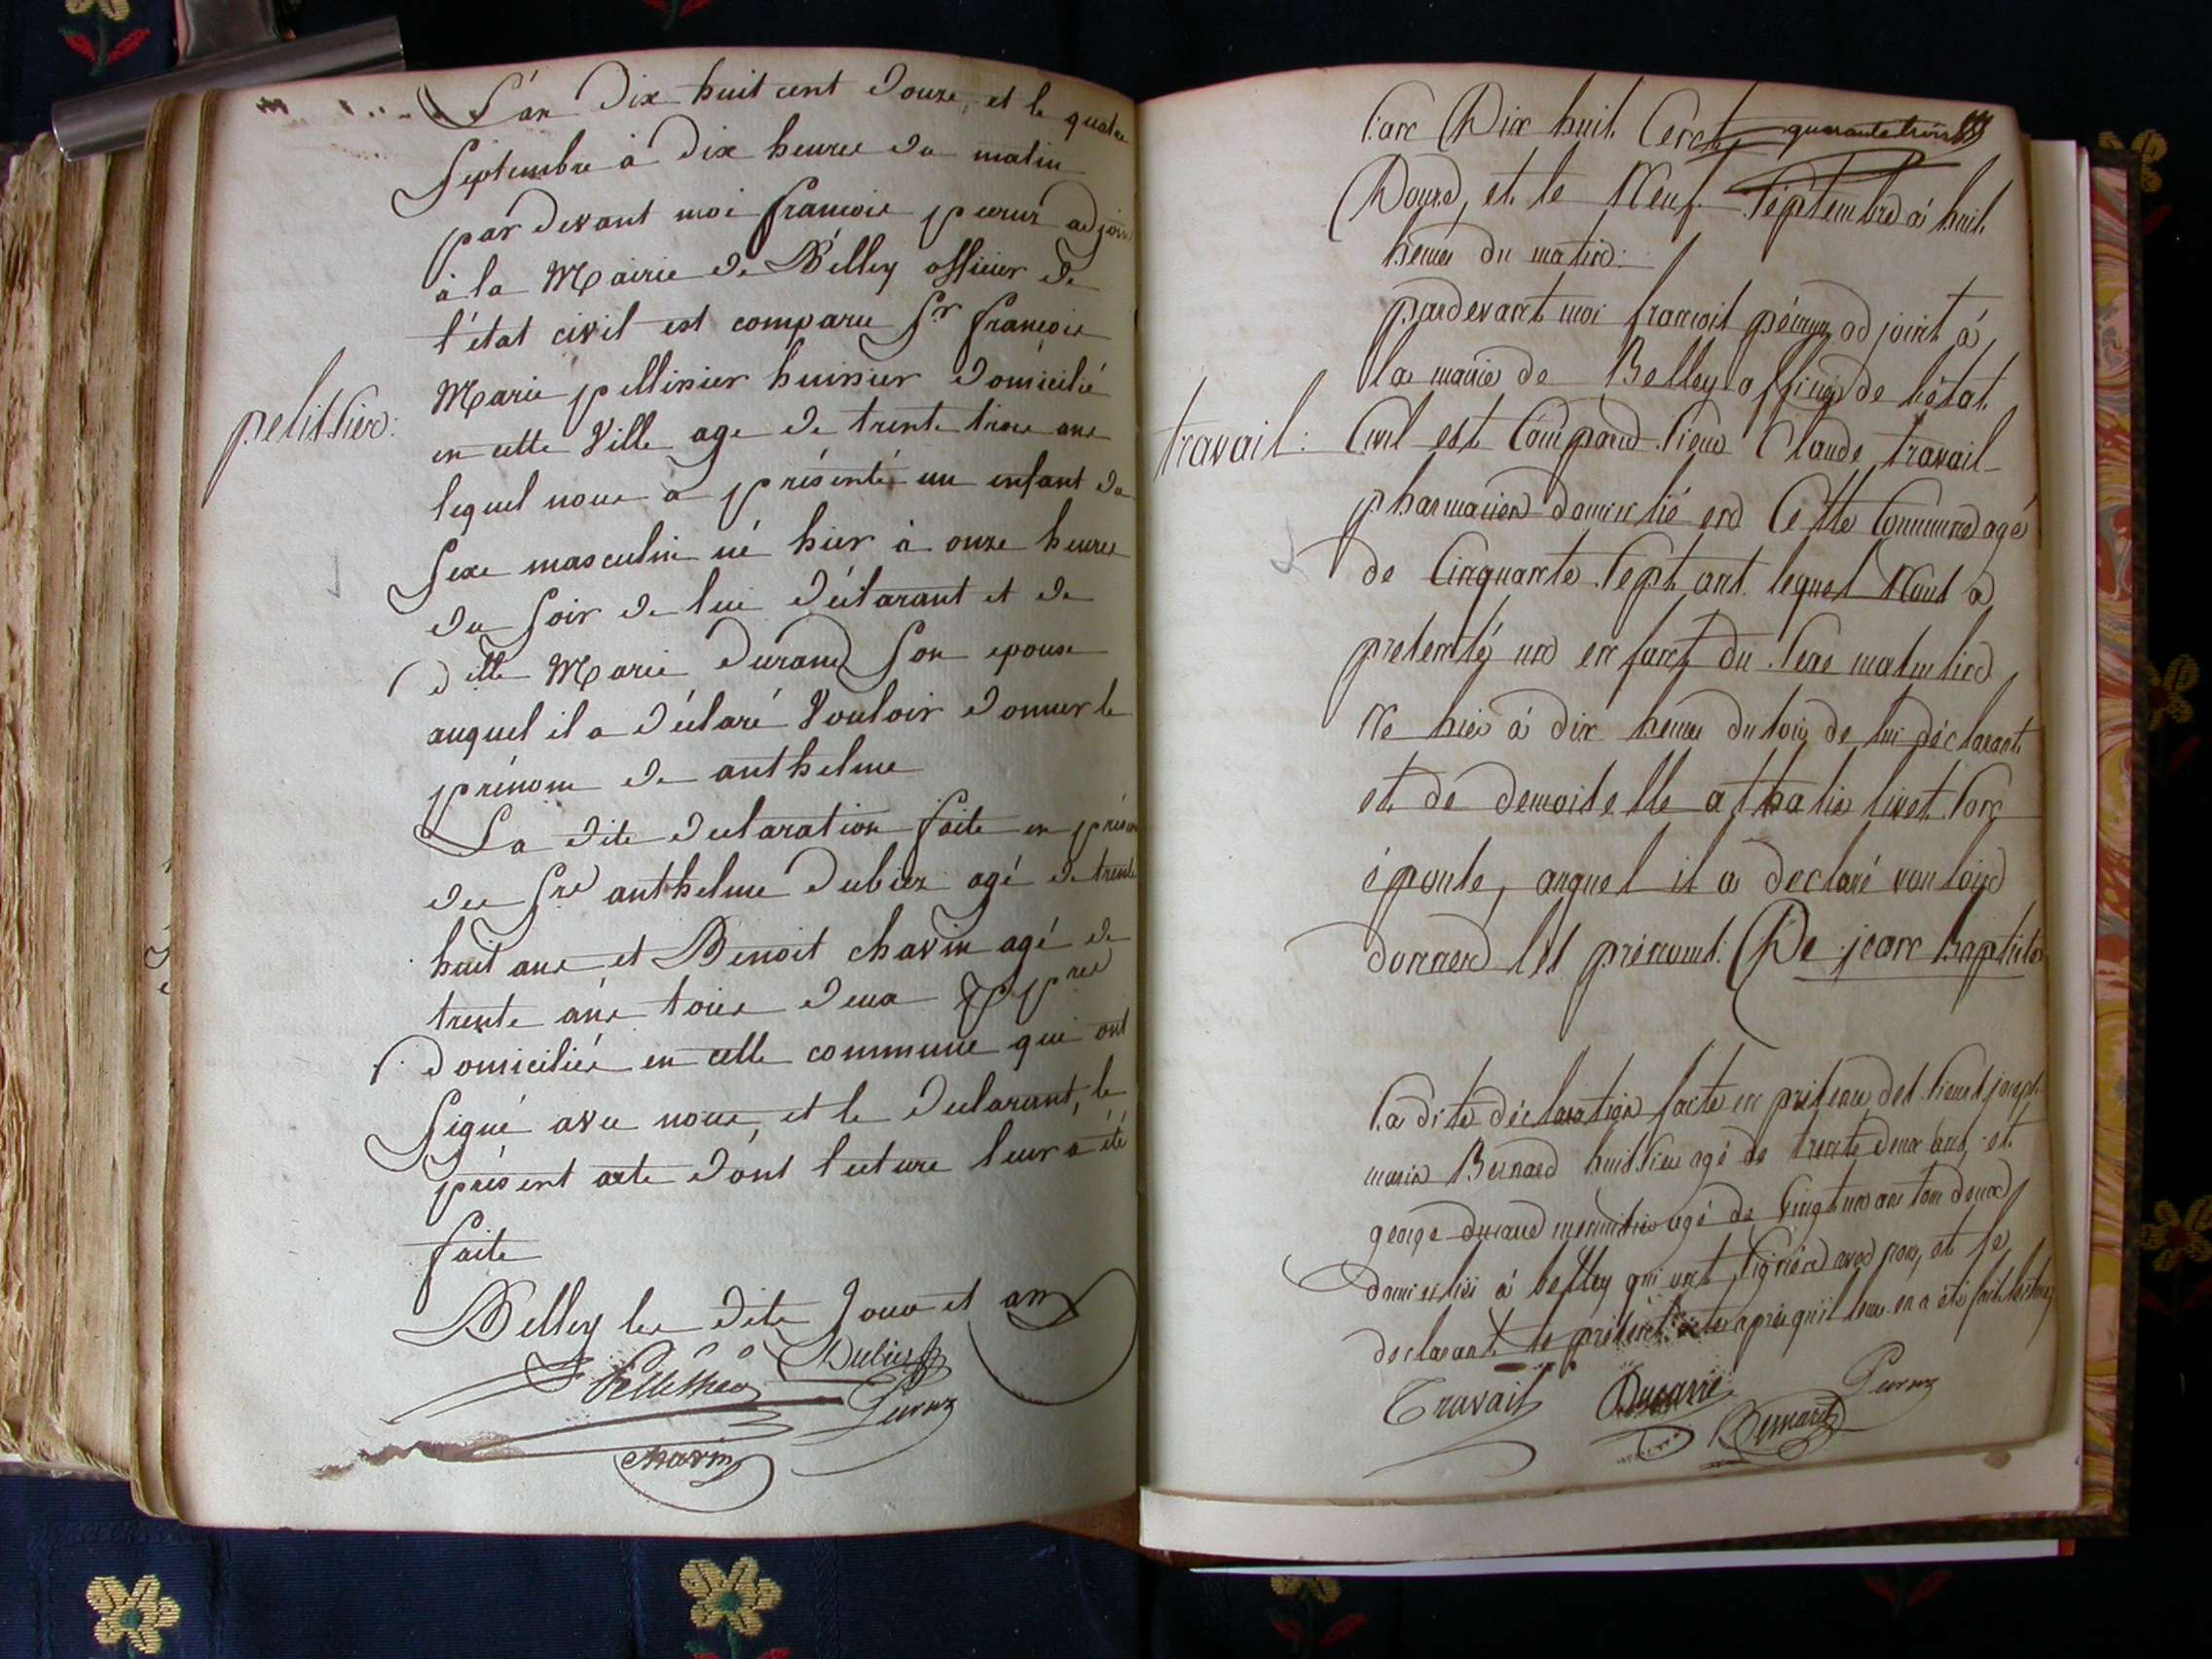 L'an Dix huit cent Douze, et le quatre
Septembre à Dix heures du matin
par devant moi françois peruz adjoin
à la Mairie de Bélley officier de
l'état civil est comparu Sr françois
Marie pellissier huissier Domicilié
en cette Ville age de trente trois ans
pelissier:
lequel nous a présenté un enfant du
Sexe masculin né hier à onze heures
du Soir de lui Déclarant et de
dlle Marie Durand Son epouse
auquel il a Déclaré Vouloir Donner le
prénom de anthelme
La dite declaration faite en présen
des Srs anthelme Dubiez agé de trente
huit ans et Benoit chavin agé de
trente ans tous deux ppres
Domiciliés en cette commune qui ont
Signé avec nous, et le Declarant, le
présent acte dont lecture leur a été
faite
Belley les dits Jour et an
Dubiez
Pellissier
Peruz
chavin
l'an Dix huit Cent quarante trois
Douze, et le Neuf Septembre à huit
heures du matin:
pardevant moi francois péruz adjoint à
la mairie de Belley officier de l'état
travail:
Civil est Comparu Sieur Claude travail
pharmacien domicilié en Cette Commune agé
de Cinquante Sept ans lequel Nous a
présenté un enfant du Sexe masculin
Né hier à dix heures du soir de lui déclarant
et de demoiselle athalie livet Son
épouse, auquel il a declaré vouloir
donner les prénoms De jean baptiste
la dite déclaration faite en présence des Sieurs joseph
marie Bernard huissier agé de trente deux ans, et
george ducarre menuisier agé de Vingt un ans tous deux
domiciliés à belley qui ont Signé avec nous, et le
declarant le présent acte après qu'il leur en a été fait lecture
Travail Ducarre Peruz
Bernard